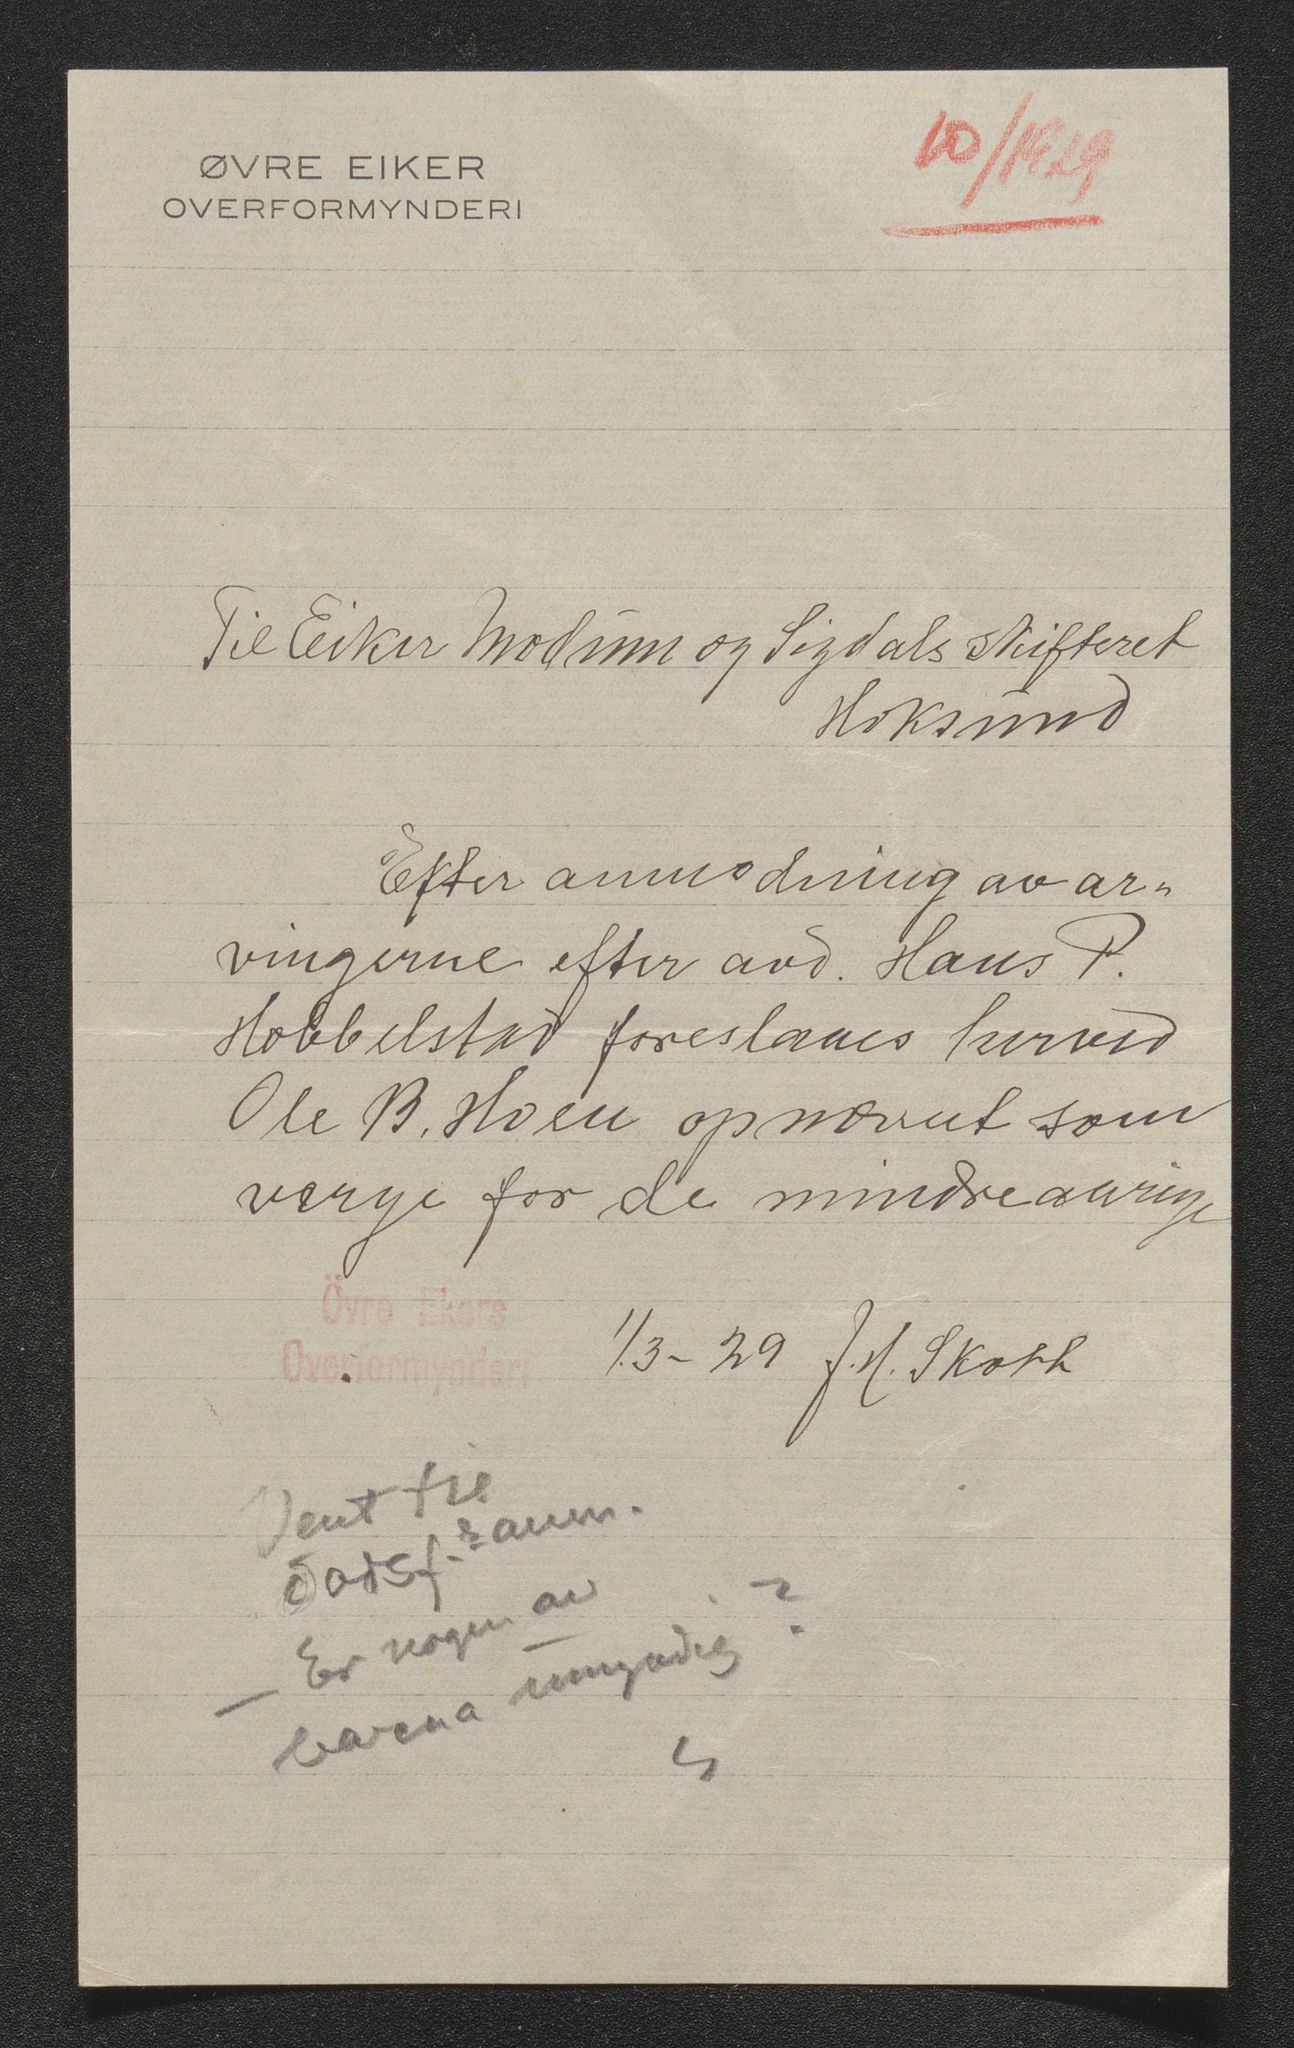 ØVRE EIKER
OVERFORMYNDERI
10/1929
Til Eiker Modum og Sigdals skifteret
Hoksund
Efter anmodning av ar-
vingerne efter avd. Hans P.
Hobbelstad foreslaaes herved
Ole B. Hoen opnævnt som
verge for de mindreaarige
Övre Ekers
Overformynderi
1/3-29 J. H. Skotk
Vent til
dødsf. anm.
— Er nogen av
barna umyndig?